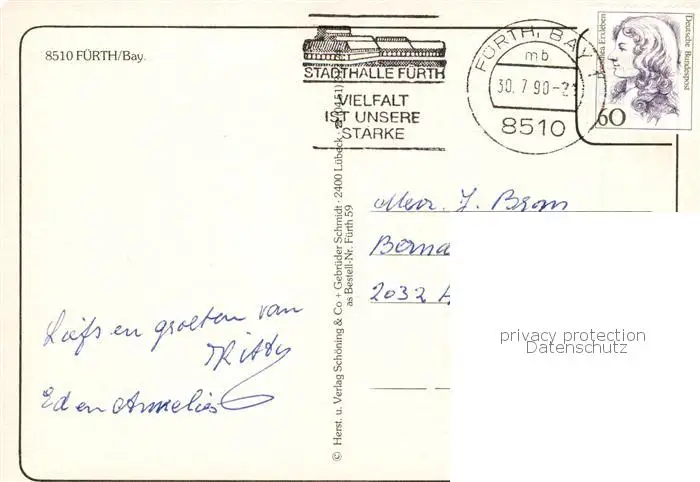 8510 FÜRTH/Bay.
STADTHALLE FÜRTH
VIELFALT
IST UNSERE
STÄRKE
FÜRTH, BAY
mb
30.7.90-21
8510
Deutsche Bundespost
Erxleben
60
© Herst. u. Verlag Schöning & Co + Gebrüder Schmidt · 2400 Lübeck · (0451)
as Bestell-Nr. Fürth 59
Mevr. J. Bron
Berna
2032
Liefs en groeten van
Kitty
Ed en Annelies
privacy protection
Datenschutz